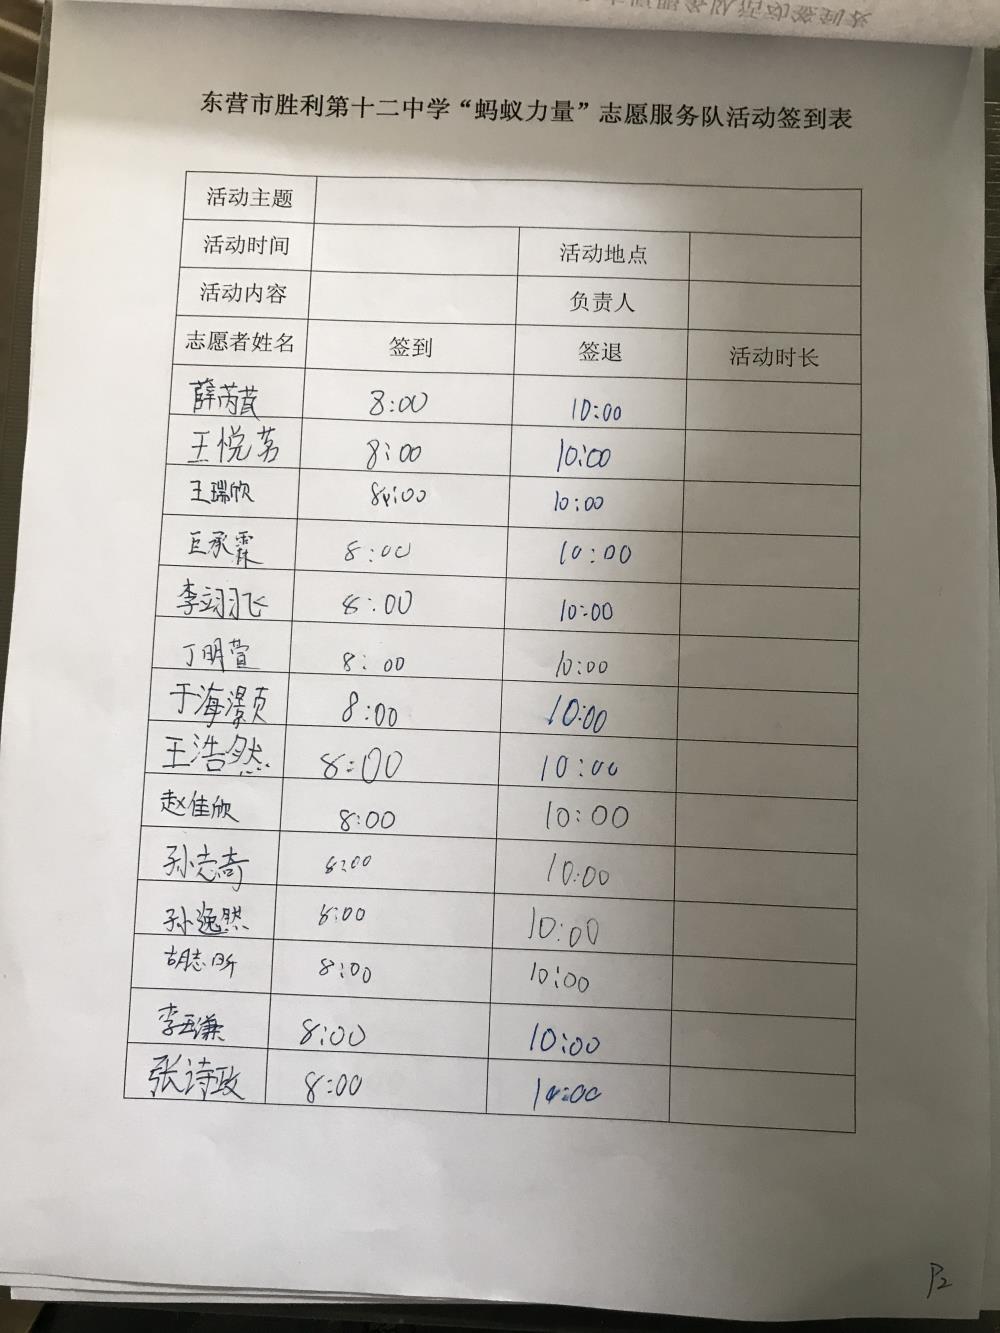 东营市胜利第十二中学“蚂蚁力量”志愿服务队活动签到表
活动主题
活动时间 活动地点
活动内容 负责人
志愿者姓名 签到 签退 活动时长
薛芮萱 8:00 10:00
王悦茗 8:00 10:00
王瑞欣 8:00 10:00
巨承霖 8:00 10:00
李翊飞 8:00 10:00
丁明萱 8:00 10:00
于海灏 8:00 10:00
王浩然 8:00 10:00
赵佳欣 8:00 10:00
孙志奇 8:00 10:00
孙逸然 8:00 10:00
胡志昕 8:00 10:00
李玉谦 8:00 10:00
张诗政 8:00 10:00
P2